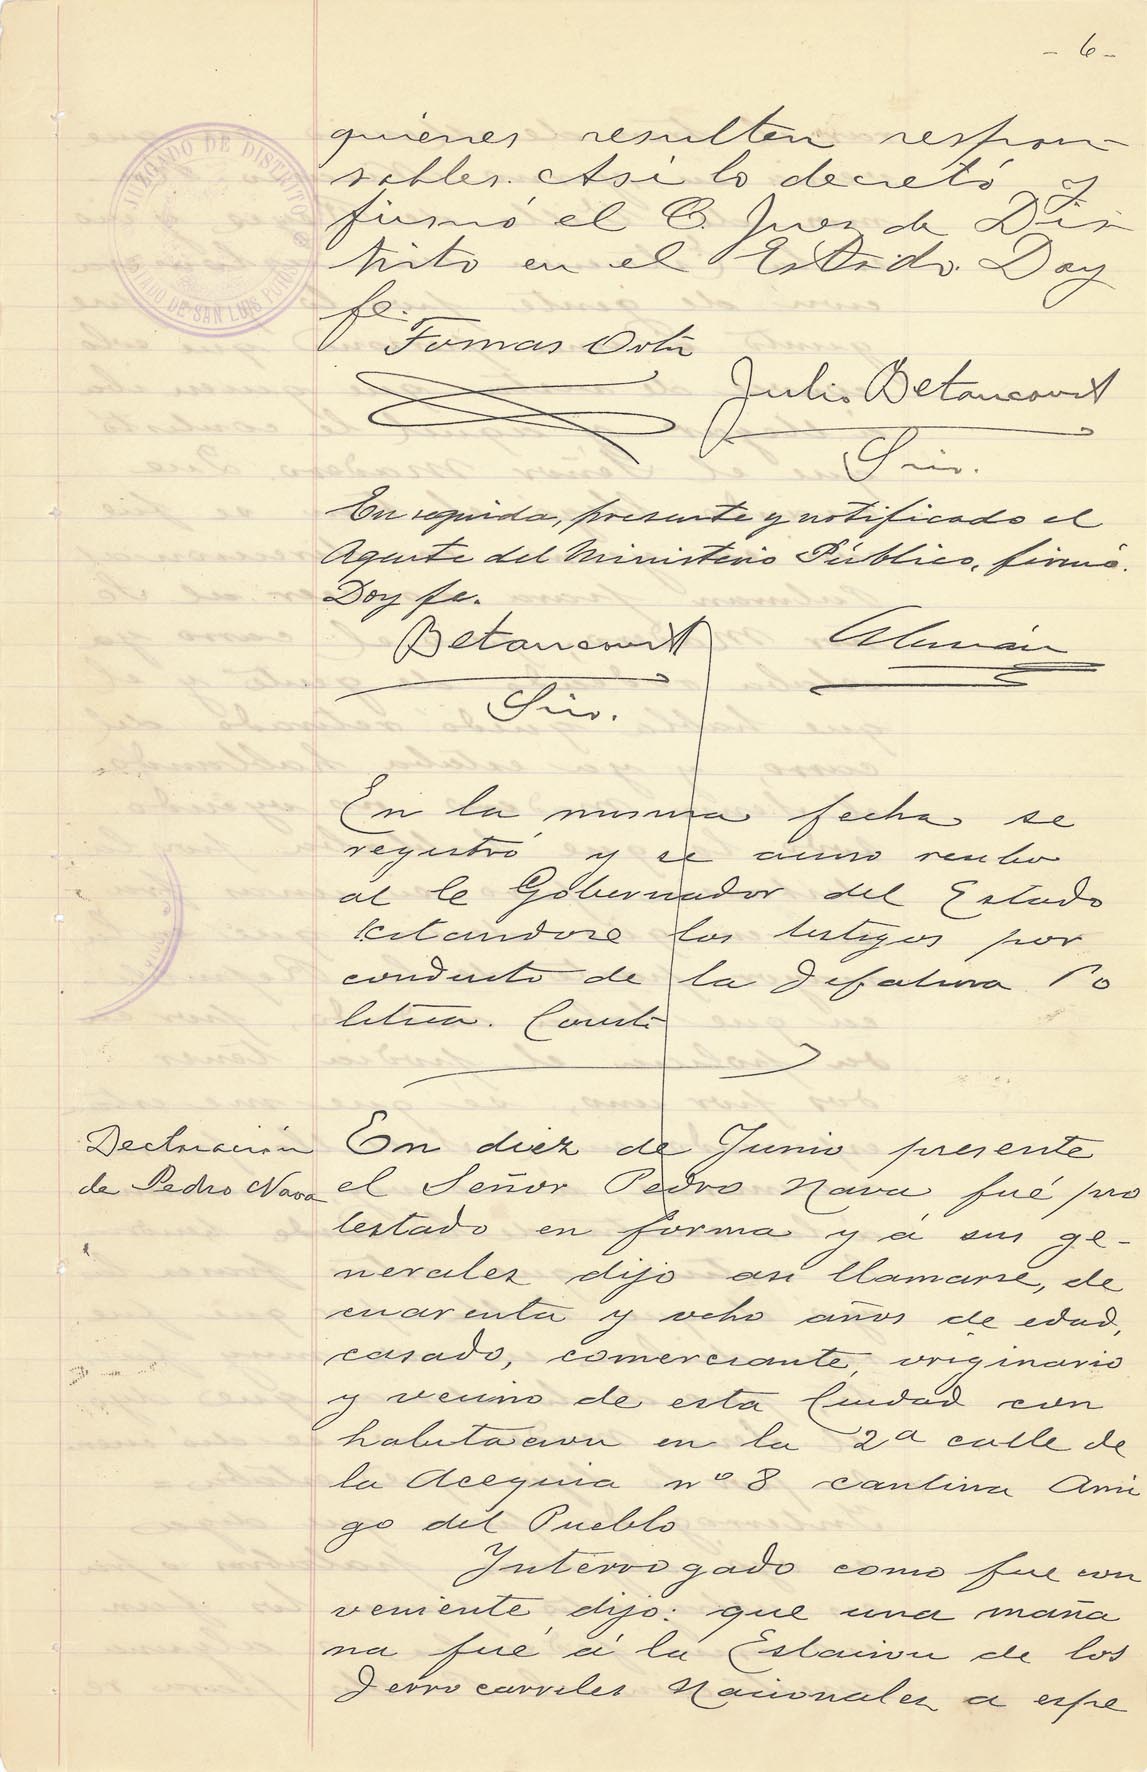 - 6 -
JUZGADO DE DISTRITO
ESTADO DE SAN LUIS POTOSI
quienes resulten respon-
sables. Asi lo decretó y
firmó el C. Juez de Dis
trito en el Estado. Doy
fe.
Tomas Ortiz
Julio Betancourt
Srio.
En seguida, presente y notificado el
Agente del Ministerio Público, firmó.
Doy fe.
Betancourt
Alemán
Srio.
En la misma fecha se
registró y se acuso recibo
al C Gobernador del Estado
citandose los testigos por
conducto de la Jefatura Po
litica. Conste
Declaración
de Pedro Nava
En diez de Junio presente
el Señor Pedro Nava fué pro
testado en forma y á sus ge-
nerales dijo asi llamarse, de
cuarenta y ocho años de edad,
casado, comerciante, originario
y vecino de esta Ciudad con
habitacion en la 2a calle de
la Acequia no 8 cantina Ami
go del Pueblo
Interrogado como fue con
veniente dijo: que una maña
na fué á la Estacion de los
Ferrocarriles Nacionales a espe